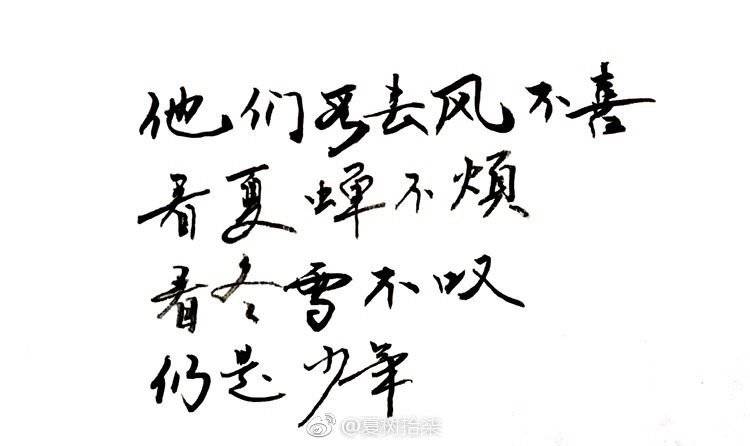 他们看去风不喜
看夏蝉不煩
看冬雪不叹
仍是少年
@夏树拾柒